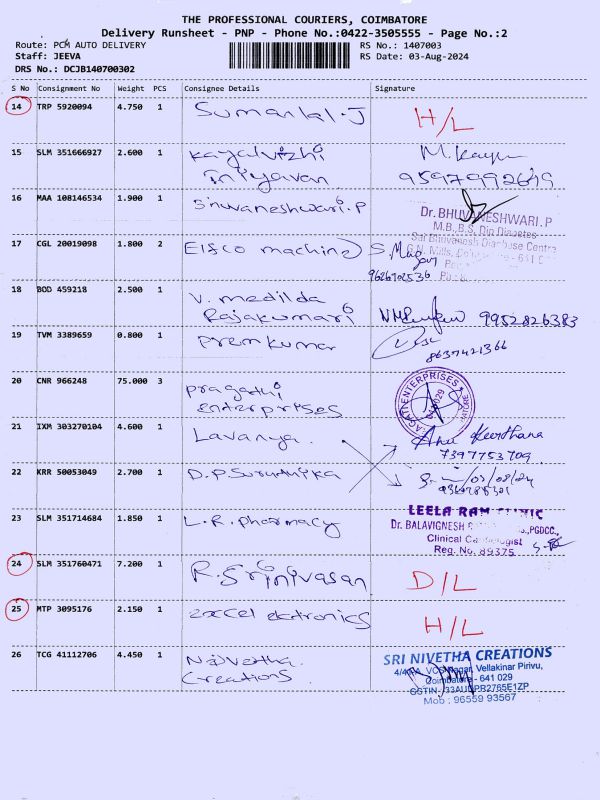 THE PROFESSIONAL COURIERS, COIMBATORE
Delivery Runsheet - PNP - Phone No.:0422-3505555 - Page No.:2
Route: PCM AUTO DELIVERY RS No.: 1407003
Staff: JEEVA RS Date: 03-Aug-2024
DRS No.: DCJB140700302
S No Consignment No Weight PCS Consignee Details Signature
14 TRP 5920094 4.750 1 Sumanlal.J H/L
15 SLM 351666927 2.600 1 Kayalvizhi
Iniyavan
16 MAA 108146534 1.900 1 Bhuvaneshwari.P
Dr. BHUVANESHWARI.P
M.B.,B.S, Dip Diabetes
17 CGL 20019098 1.800 2 Elsco machine
9626702536
18 BOD 459218 2.500 1 V. medilda
Rajakumari 9952826383
19 TVM 3389659 0.800 1 Premkumar
8637421366
20 CNR 966248 75.000 3 pragathi
enterprises
21 IXM 303270104 4.600 1 Lavanya. Keerthana
7397753709
22 KRR 50053049 2.700 1 D.P. 03/08/24
23 SLM 351714684 1.850 1 L.R. pharmacy
LEELA RAM CLINIC
Dr. BALAVIGNESH
Clinical
Reg. No. 89375
24 SLM 351760471 7.200 1 R. Srinivasan D/L
25 MTP 3095176 2.150 1 excel H/L
26 TCG 41112706 4.450 1
Creations
SRI NIVETHA CREATIONS
VCS Nagar, Vellakinar Pirivu,
Coimbatore - 641 029
Mob : 96559 93567